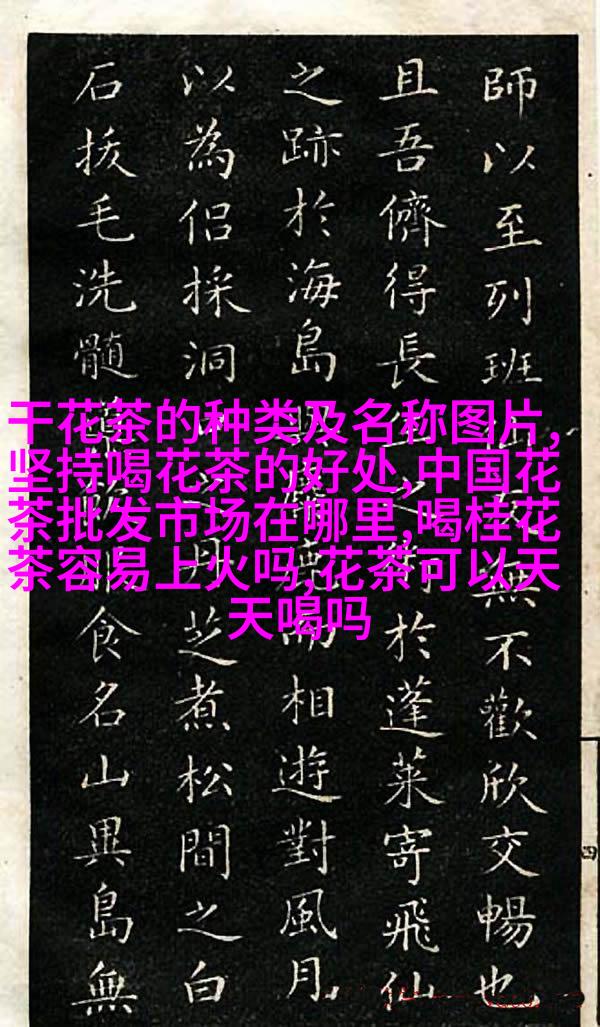 干花茶的种类及名称图片,
坚持喝花茶的好处,中国花
茶批发市场在哪里,喝桂花
茶容易上火吗,花茶可以天
天喝吗
師以至列班友無不歡欣交暢也
且吾儕得長生之於蓬萊寄飛仙
之跡於海島與麋鹿而相遊對風月
以為侶採洞之丹芝煮松間之白
石拔毛洗髓食名山異島無